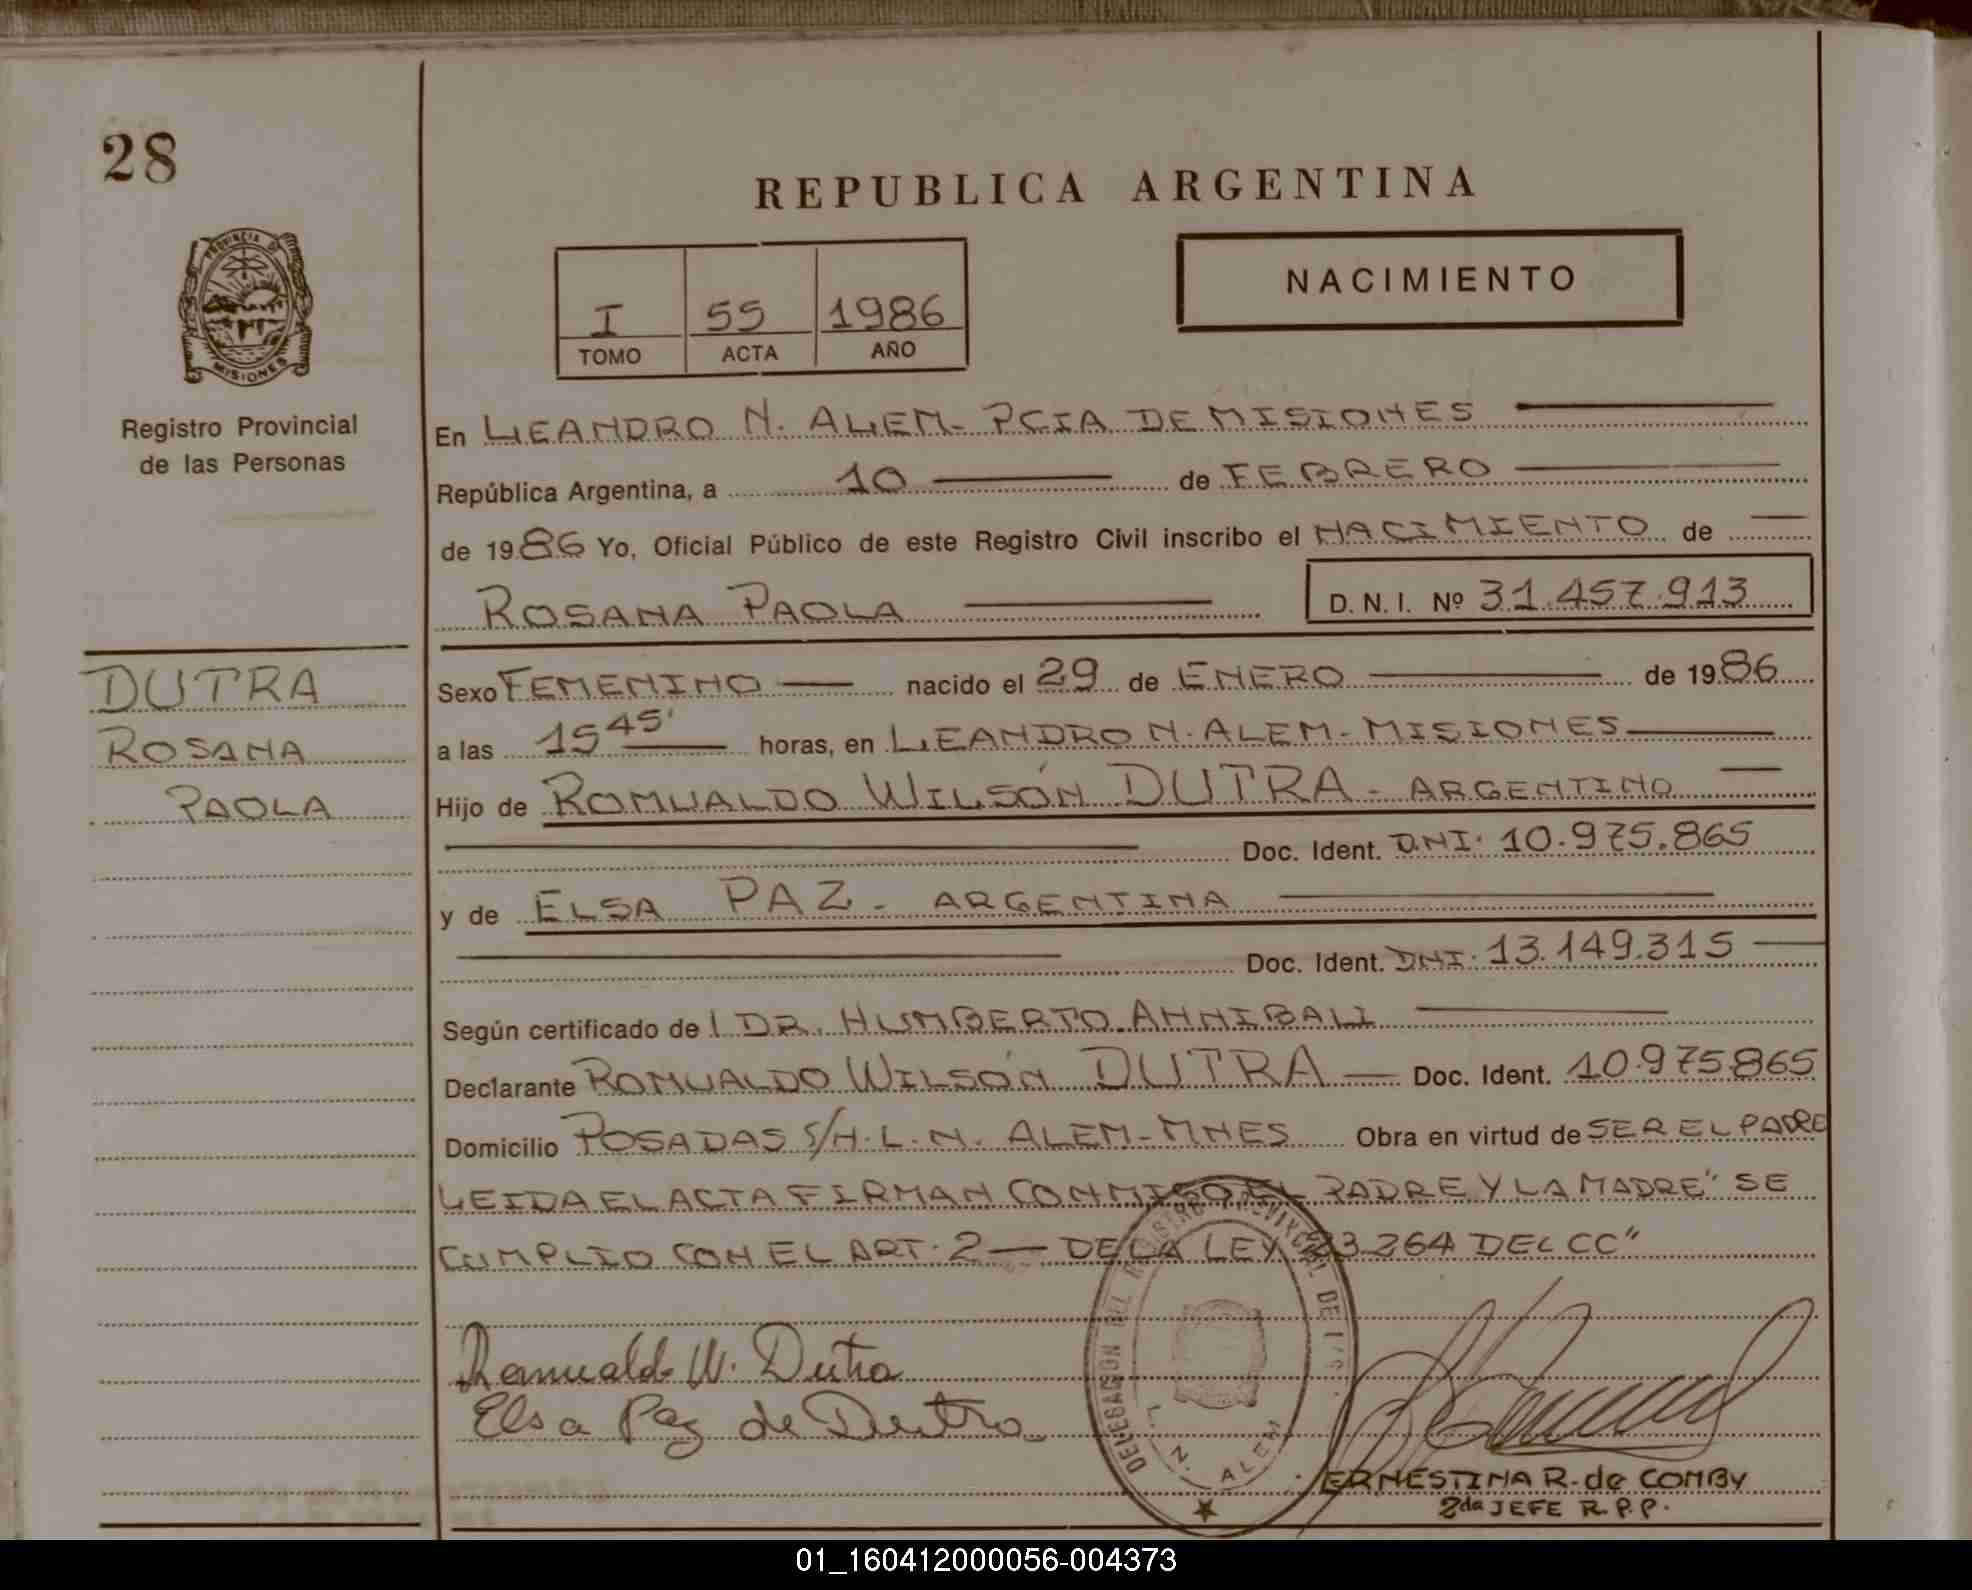 28
REPUBLICA ARGENTINA
PROVINCIA DE
MISIONES
Registro Provincial
de las Personas
I 55 1986
TOMO ACTA AÑO
NACIMIENTO
En LEANDRO N. ALEM - PCIA DE MISIONES
República Argentina, a 10 de FEBRERO
de 1986 Yo, Oficial Público de este Registro Civil inscribo el NACIMIENTO de
ROSANA PAOLA D. N. I. Nº 31.457.913
DUTRA
ROSANA
PAOLA
Sexo FEMENINO nacido el 29 de ENERO de 1986
a las 15 45' horas, en LEANDRO N. ALEM - MISIONES
Hijo de ROMUALDO WILSÓN DUTRA - ARGENTINO
Doc. Ident. D.NI. 10.975.865
y de ELSA PAZ - ARGENTINA
Doc. Ident. DNI. 13.149.315
Según certificado de l DR. HUMBERTO ANNIBALI
Declarante ROMUALDO WILSÓN DUTRA Doc. Ident. 10.975.865
Domicilio POSADAS S/N. L. N. ALEM - MNES Obra en virtud de SER EL PADRE
LEIDA EL ACTA FIRMAN CONMIGO EL PADRE Y LA MADRE " SE
CUMPLIO CON EL ART. 2 - DE LA LEY 23.264 DEL CC"
Romualdo W. Dutra
Elsa Paz de Dutra
DELEGACION DEL REGISTRO PROVINCIAL DE
L. N. ALEM
ERNESTINA R. de COMBY
2da JEFE R. P. P.
01_160412000056-004373